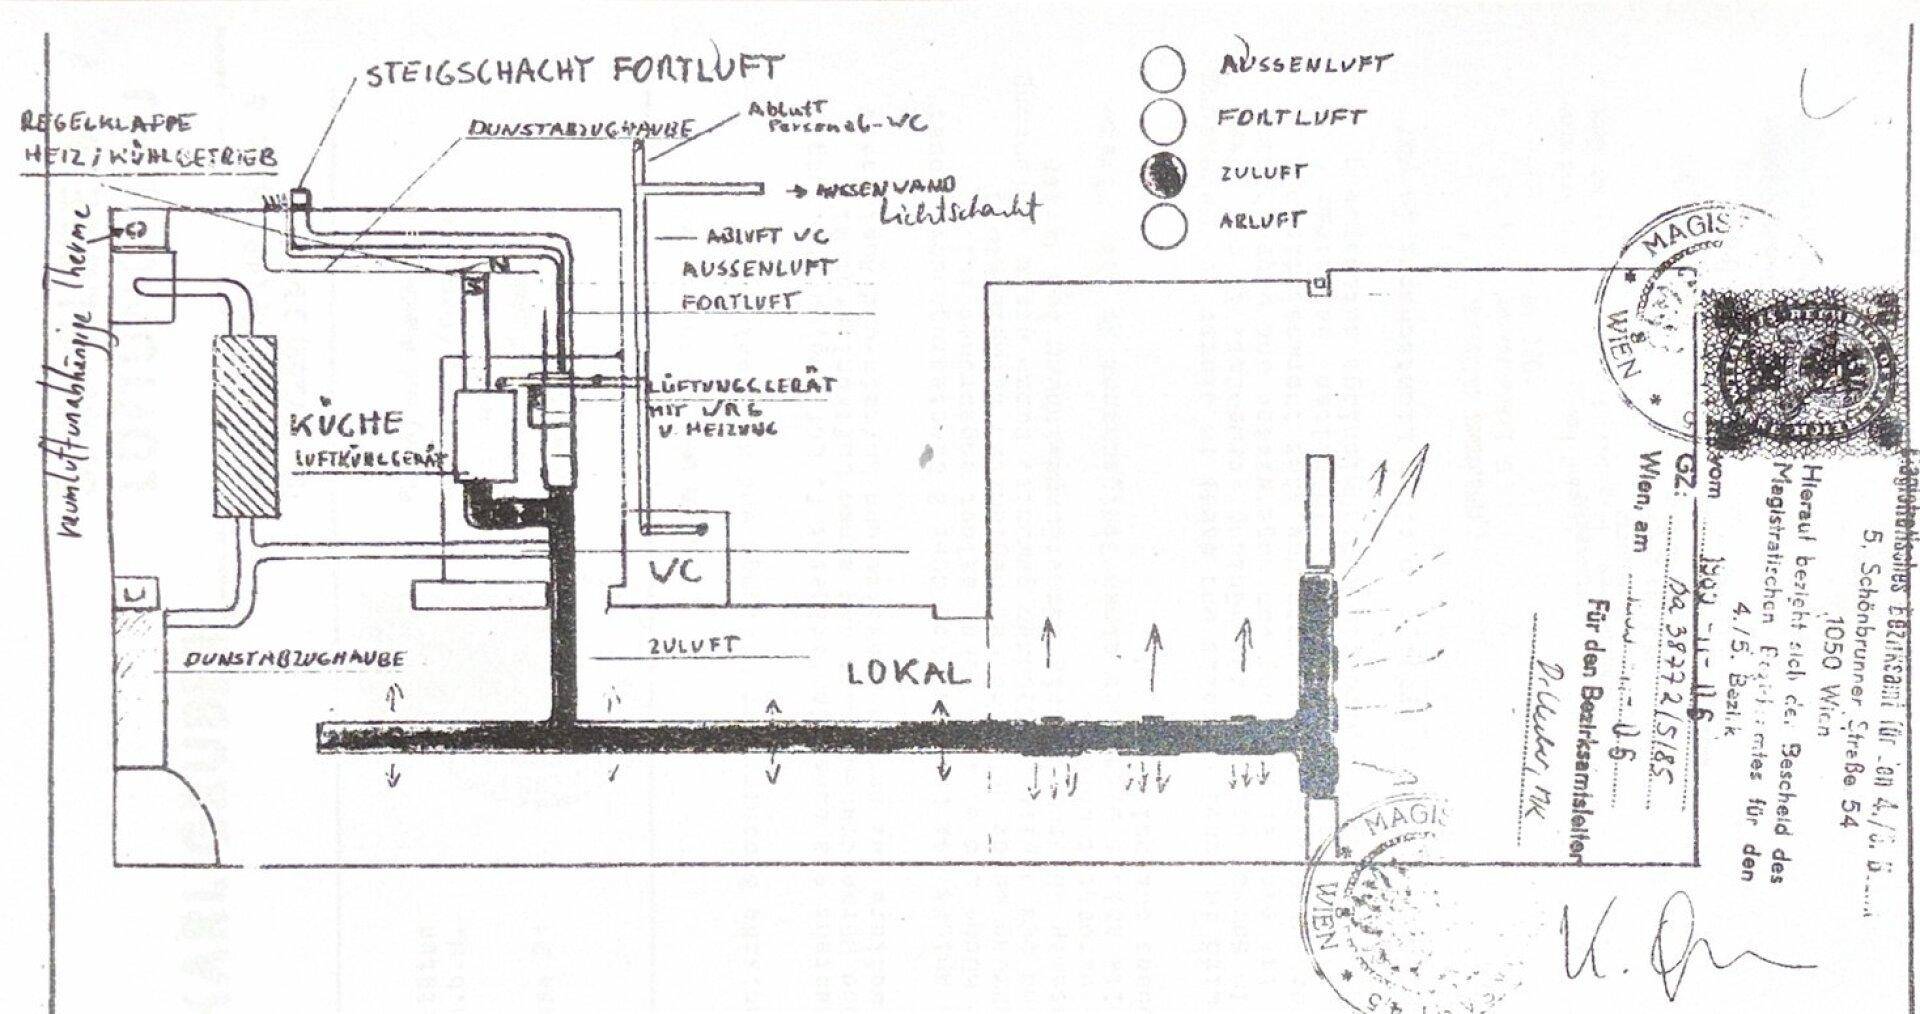 STEIGSCHACHT FORTLUFT
REGELKLAPPE
HEIZ/KÜHLBETRIEB
DUNSTABZUGHAUBE
Abluft
Personal-WC
→ AUSSENWAND
Lichtschacht
ABLUFT WC
AUSSENLUFT
FORTLUFT
raumluftunabhängige Therme
KÜCHE
LUFTKÜHLGERÄT
LÜFTUNGSGERÄT
MIT WRG
U. HEIZUNG
WC
DUNSTABZUGHAUBE
ZULUFT
LOKAL
AUSSENLUFT
FORTLUFT
ZULUFT
ABLUFT
MAGIS
* WIEN *
8
Magistratisches Bezirksamt für den 4./5.
5, Schönbrunner Straße 54
1050 Wien
Hierauf bezieht sich der Bescheid des
Magistratischen Bezirksamtes für den
4./5. Bezirk
vom
GZ: ba 38772/5/85
Wien, am
Für den Bezirksamtsleiter
MAGIS
* WIEN *
8
5
K.